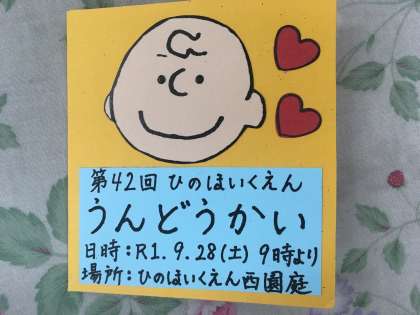 第42回 ひのほいくえん
うんどうかい
日時：R1.9.28(土) 9時より
場所：ひのほいくえん西園庭